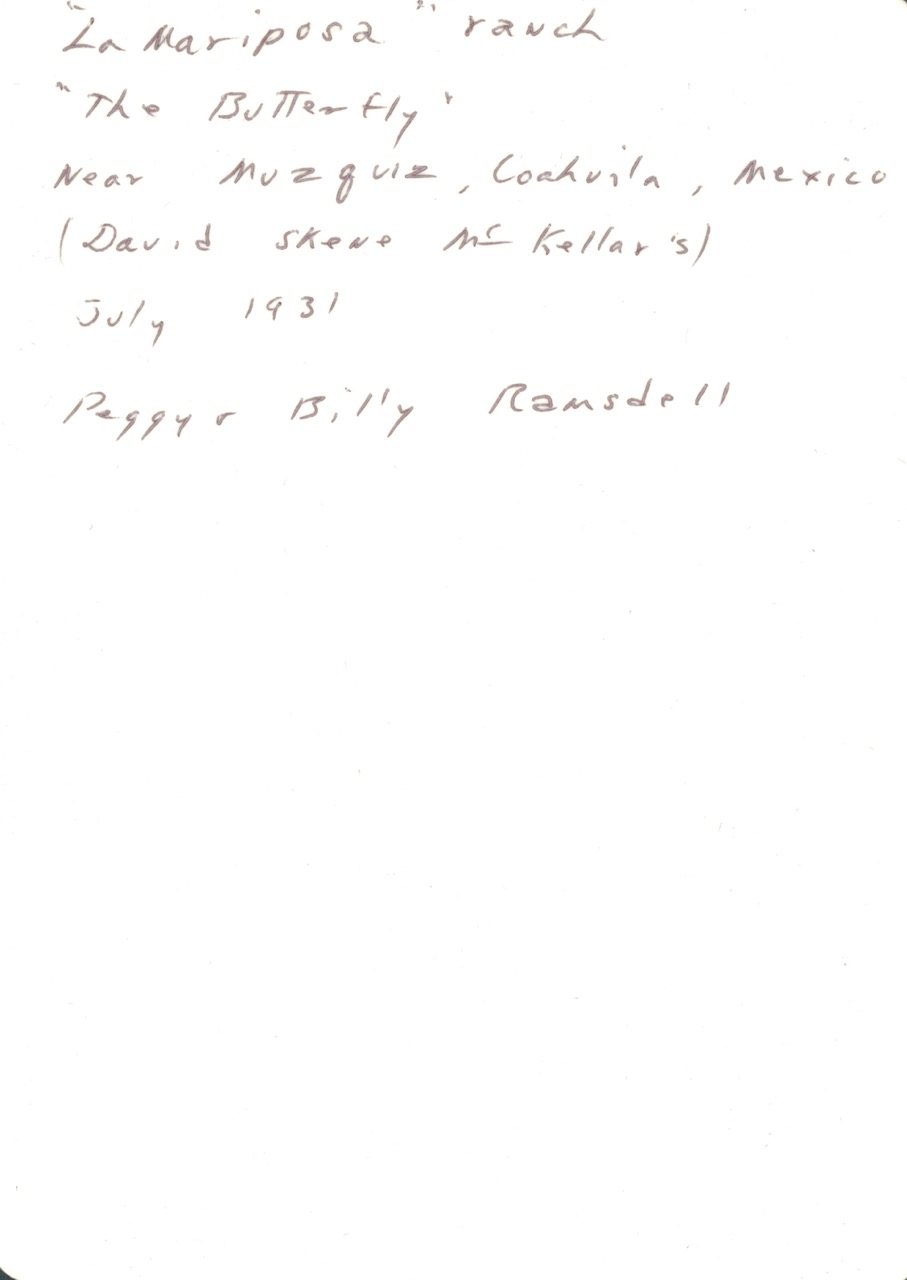 "La Mariposa" ranch
"The Butterfly"
Near Muzquiz, Coahuila, Mexico
(David Skene McKellar's)
July 1931
Peggy & Billy Ramsdell